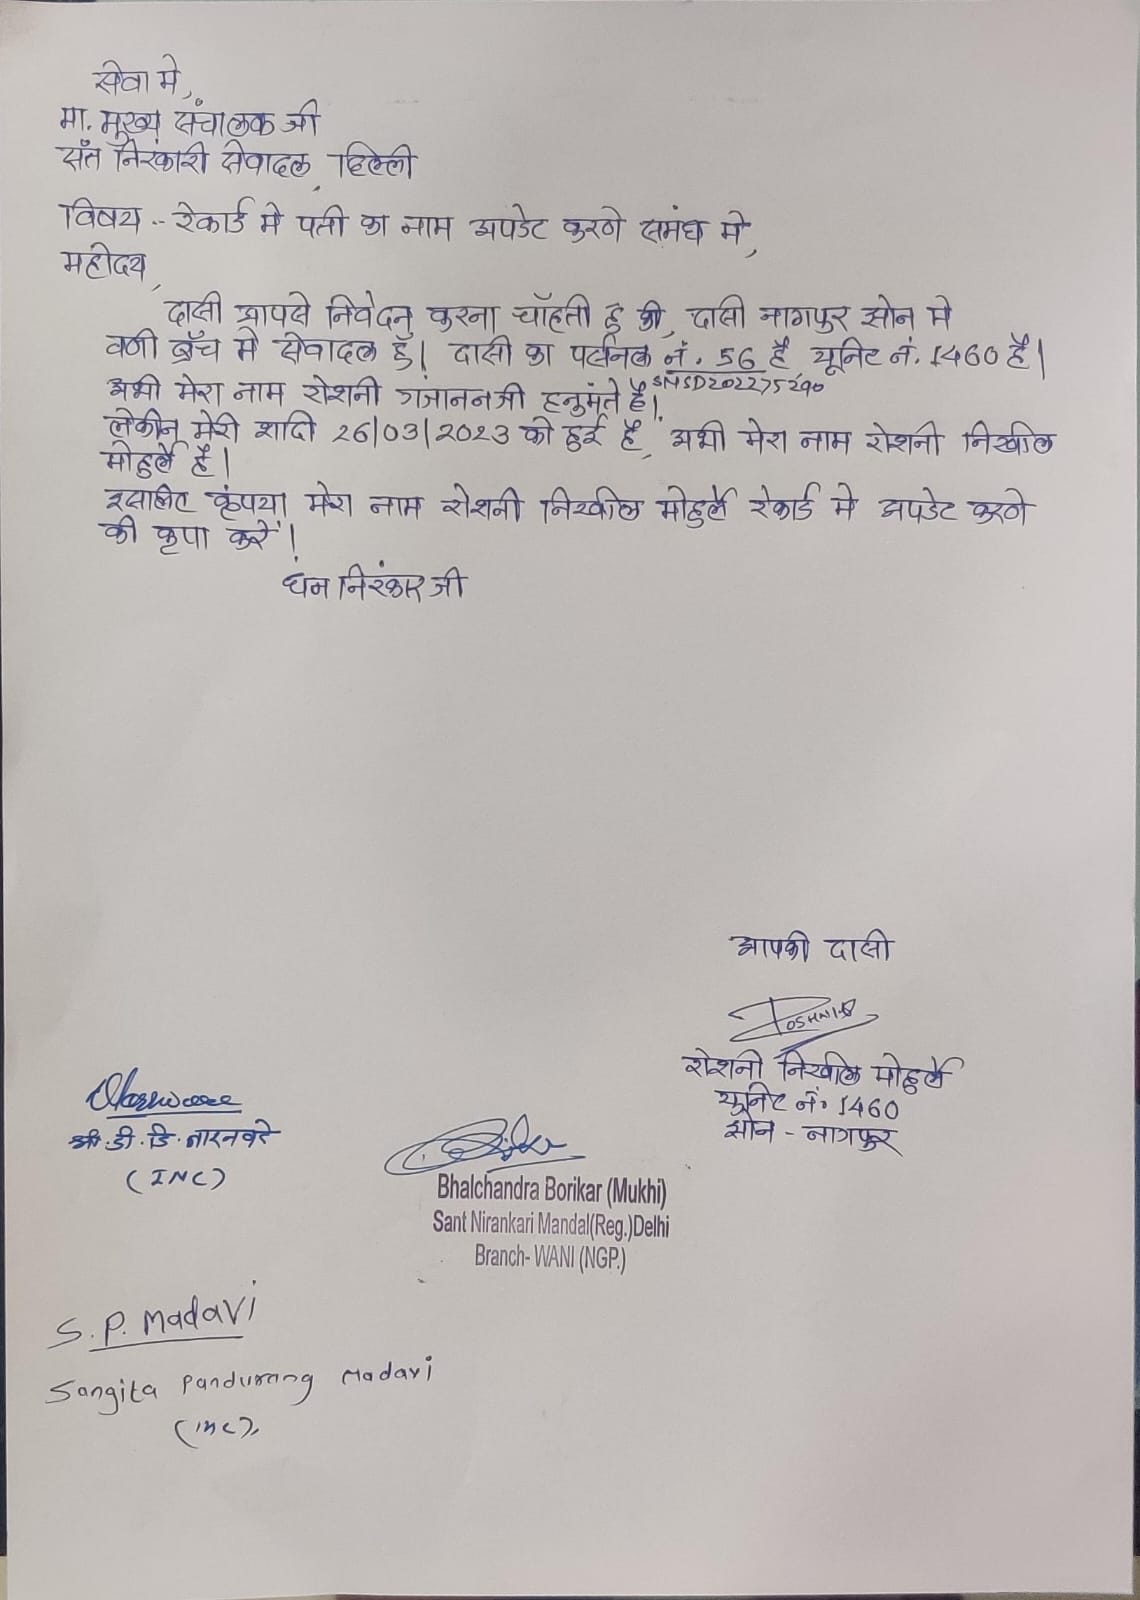 सेवा मे,
मा. मुख्य संचालक जी
संत निरंकारी सेवादल, दिल्ली
विषय :- रेकार्ड मे पती का नाम अपडेट करणे समंध मे,
महोदय,
दासी आपसे निवेदन करना चाँहती हु की, दासी नागपुर झोन मे
वणी ब्रँच मे सेवादल हुँ। दासी का पर्सनल नं. 56 है यूनिट नं. 1460 है।
SNSD202275290
अभी मेरा नाम रोशनी गजाननजी हनुमंते है।
लेकीन मेरी शादि 26/03/2023 को हुई है, अभी मेरा नाम रोशनी निखील
मोहुर्ले है।
इसलिए कृपया मेरा नाम रोशनी निखील मोहुर्ले रेकार्ड मे अपडेट करणे
की कृपा करें।
धन निरंकार जी
आपकी दासी
ROSHNI
रोशनी निखील मोहुर्ले
यूनिट नं. 1460
झोन - नागपुर
श्री. डी. डि. नारनवरे
(INC)
Bhalchandra Borikar (Mukhi)
Sant Nirankari Mandal(Reg.)Delhi
Branch- WANI (NGP.)
S. P. Madavi
Sangita Pandurang Madavi
(INC)